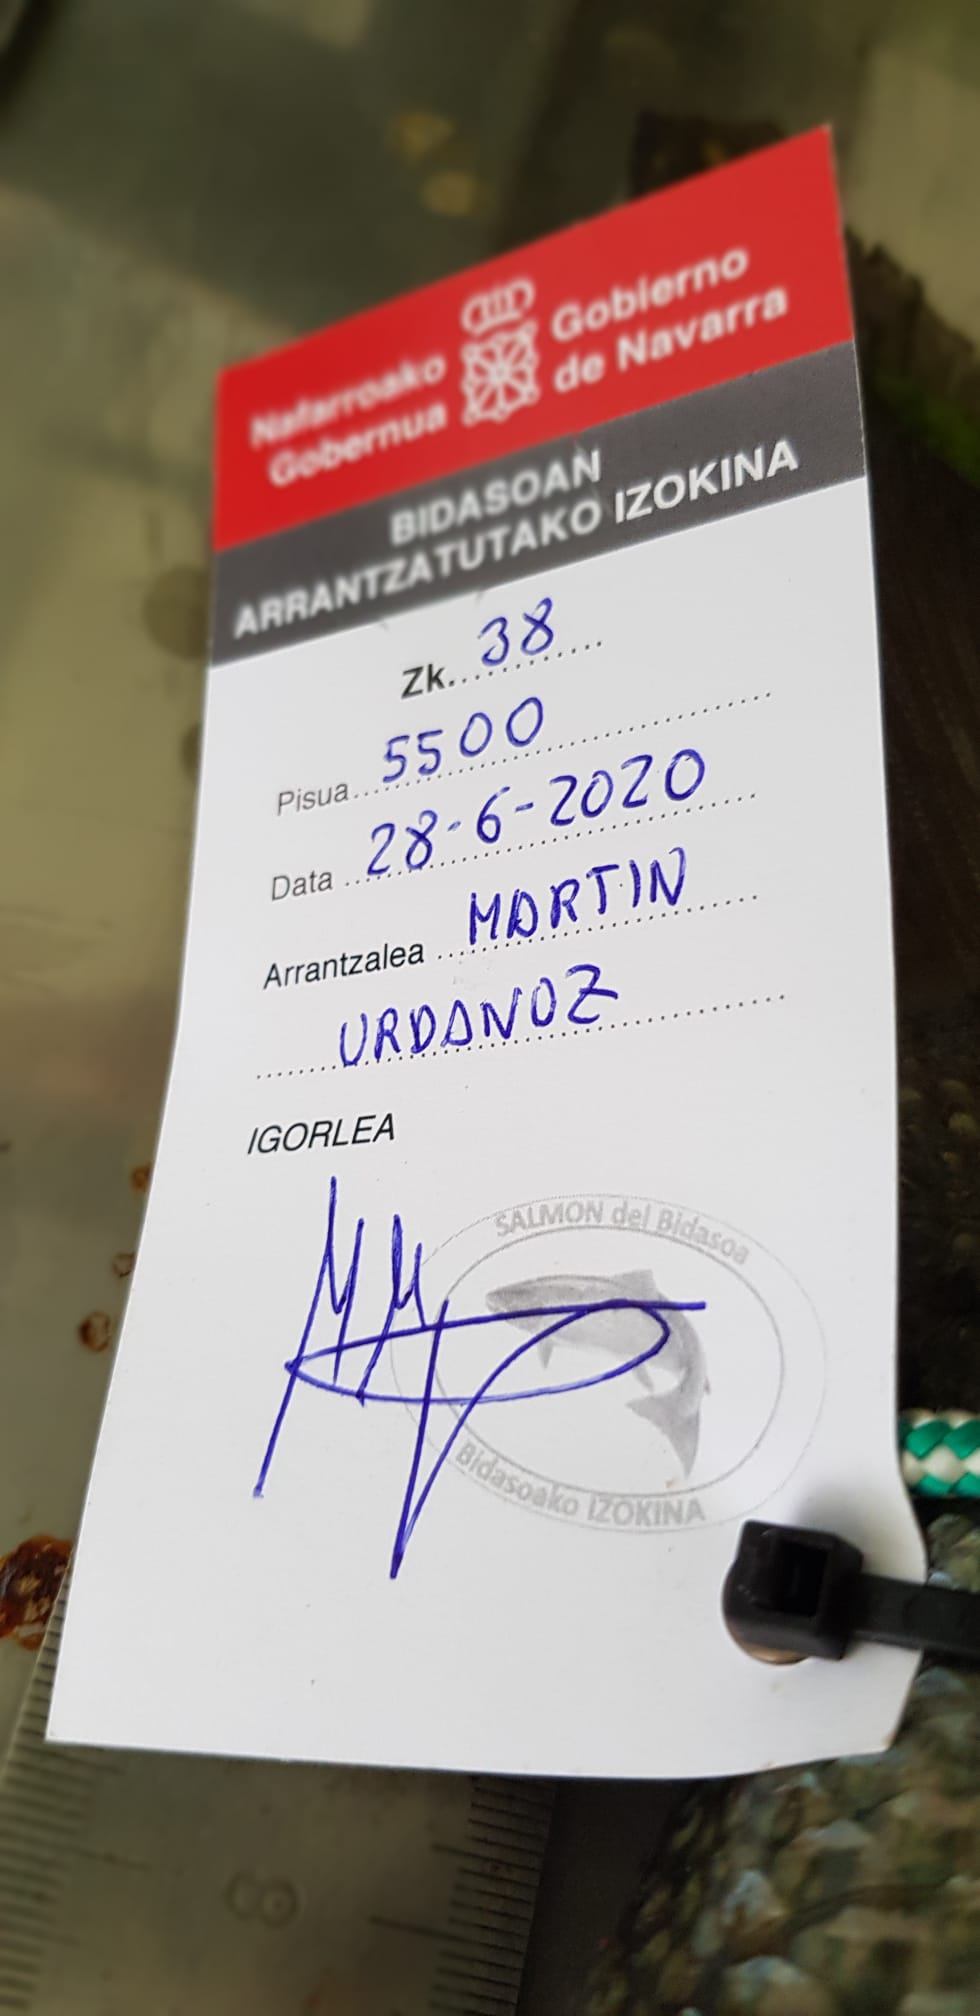 Nafarroako
Gobernua
Gobierno
de Navarra
BIDASOAN
ARRANTZATUTAKO IZOKINA
Zk. 38
Pisua 5500
Data 28-6-2020
Arrantzalea MARTIN
URDANOZ
IGORLEA
SALMON del Bidasoa
Bidasoako IZOKINA
8